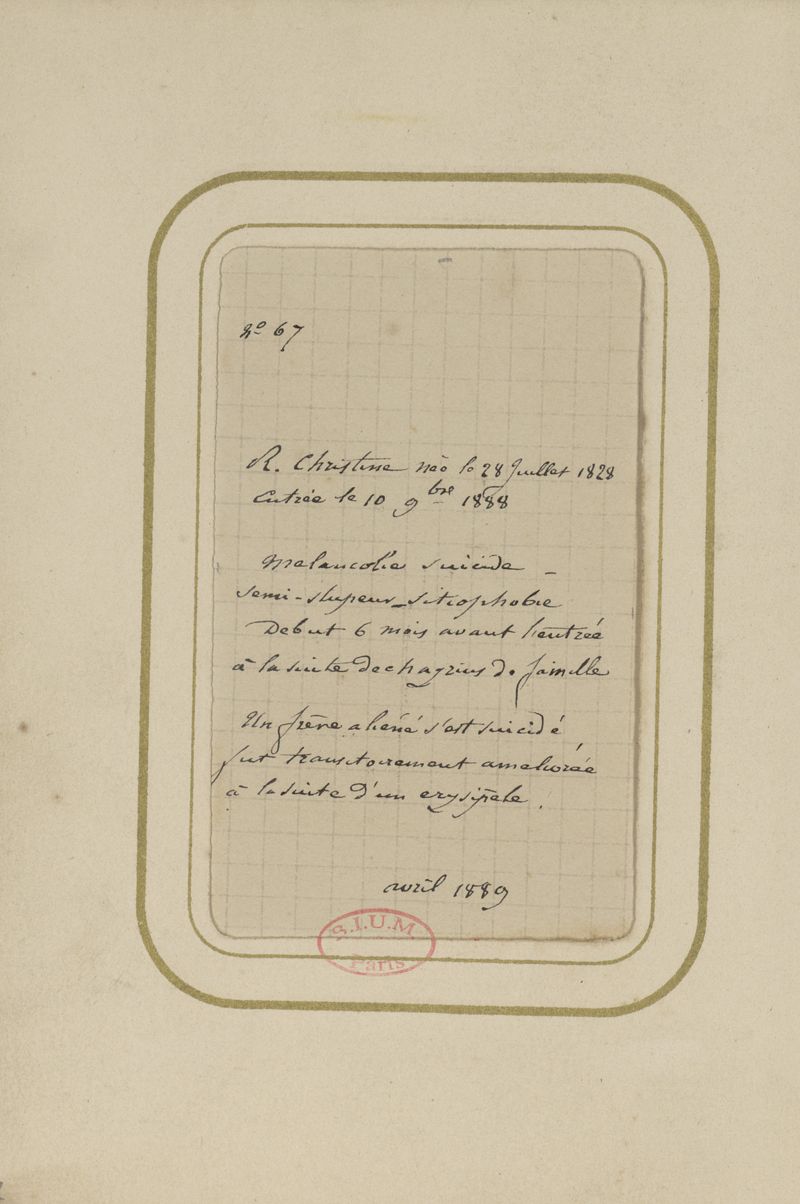 no 67
R. Christine née le 28 Juillet 1828
Entrée le 10 9bre 1888
Melancolie suicide –
semi-stupeur – sitiophobie
Debut 6 mois avant l'entrée
à la suite de chagrins de famille
Un frère aliéné s'est suicidé
fut transitoirement améliorée
à la suite d'un erysipèle.
avril 1889
S.I.U.M
Paris